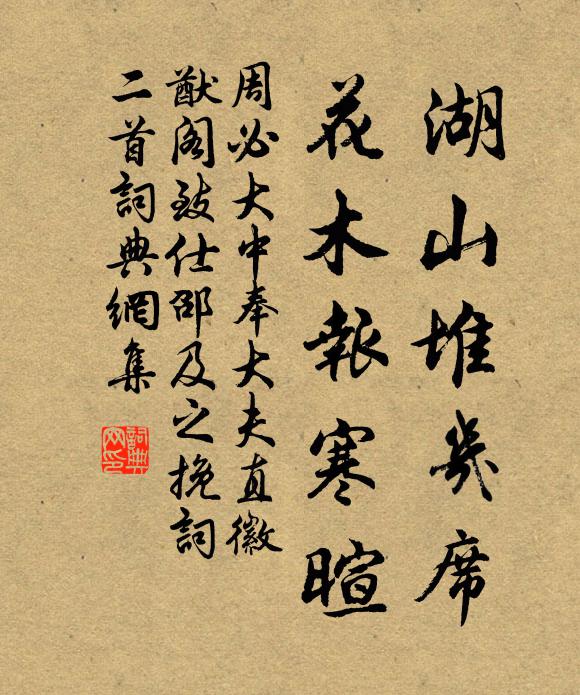 湖山堆几席
花木報寒暄
周必大中奉大夫直徽
猷閣致仕邵及之挽詞
二首詞典網集
詞典网印